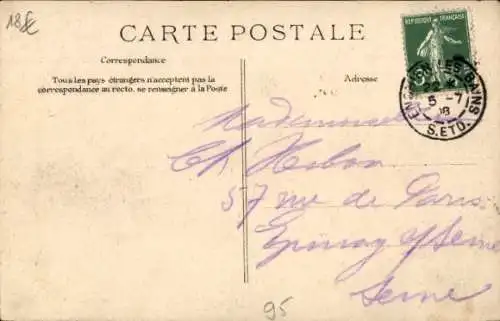 18 €
CARTE POSTALE
REPUBLIQUE FRANÇAISE
Correspondance
Tous les pays étrangers n'acceptent pas la
correspondance au recto. se renseigner à la Poste
Adresse
ENGHIEN-LES-BAINS
5 - 7
08
S. ETO.
Mademoiselle
Ch.
57 rue de Paris
Epinay s/Seine
Seine
95